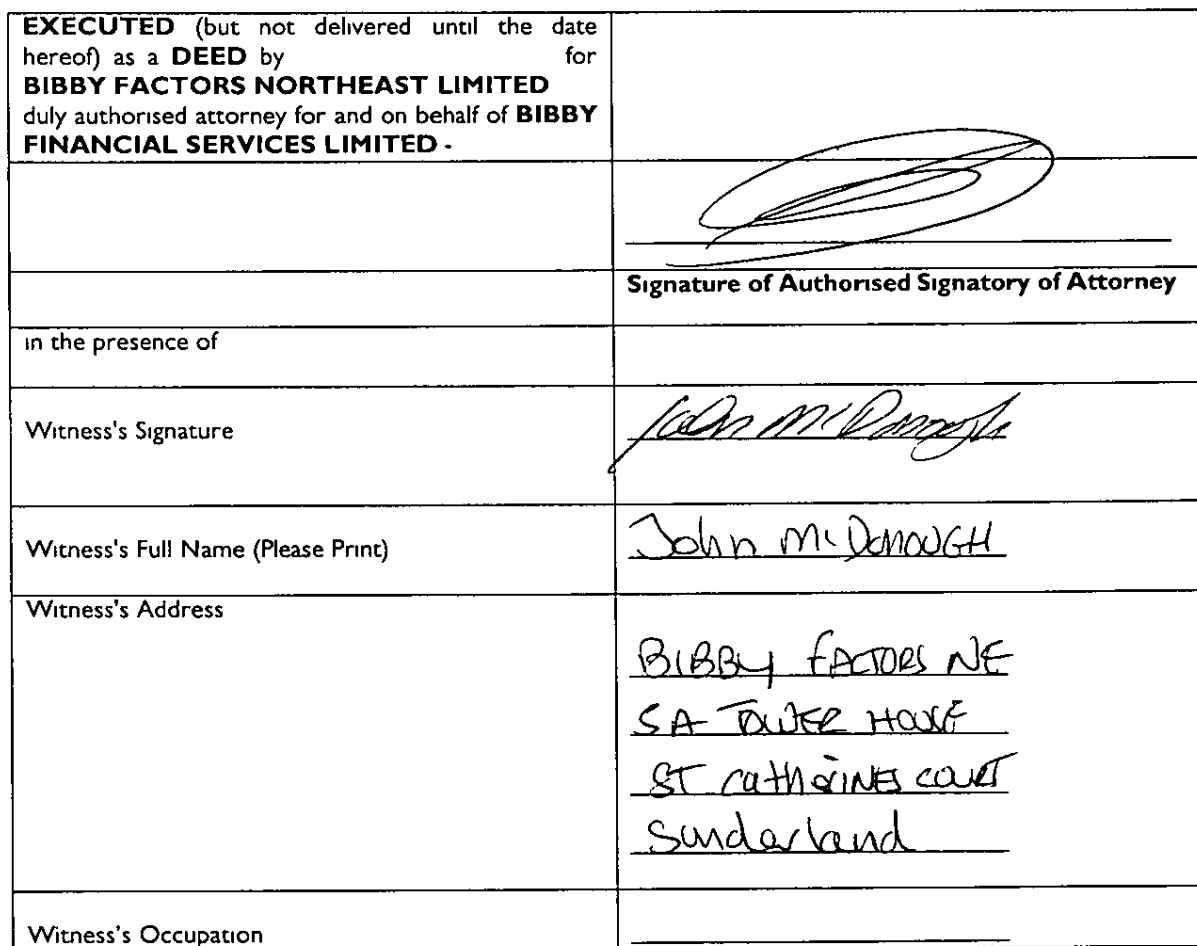 EXECUTED (but not delivered until the date
hereof) as a DEED by for
BIBBY FACTORS NORTHEAST LIMITED
duly authorised attorney for and on behalf of BIBBY
FINANCIAL SERVICES LIMITED -
Signature of Authorised Signatory of Attorney
in the presence of
Witness's Signature John McDonough
Witness's Full Name (Please Print) John McDonoUGH
Witness's Address
BIBBY FACTORS NE
5A TOWER HOUSE
ST catheriNES COURT
Sunderland
Witness's Occupation